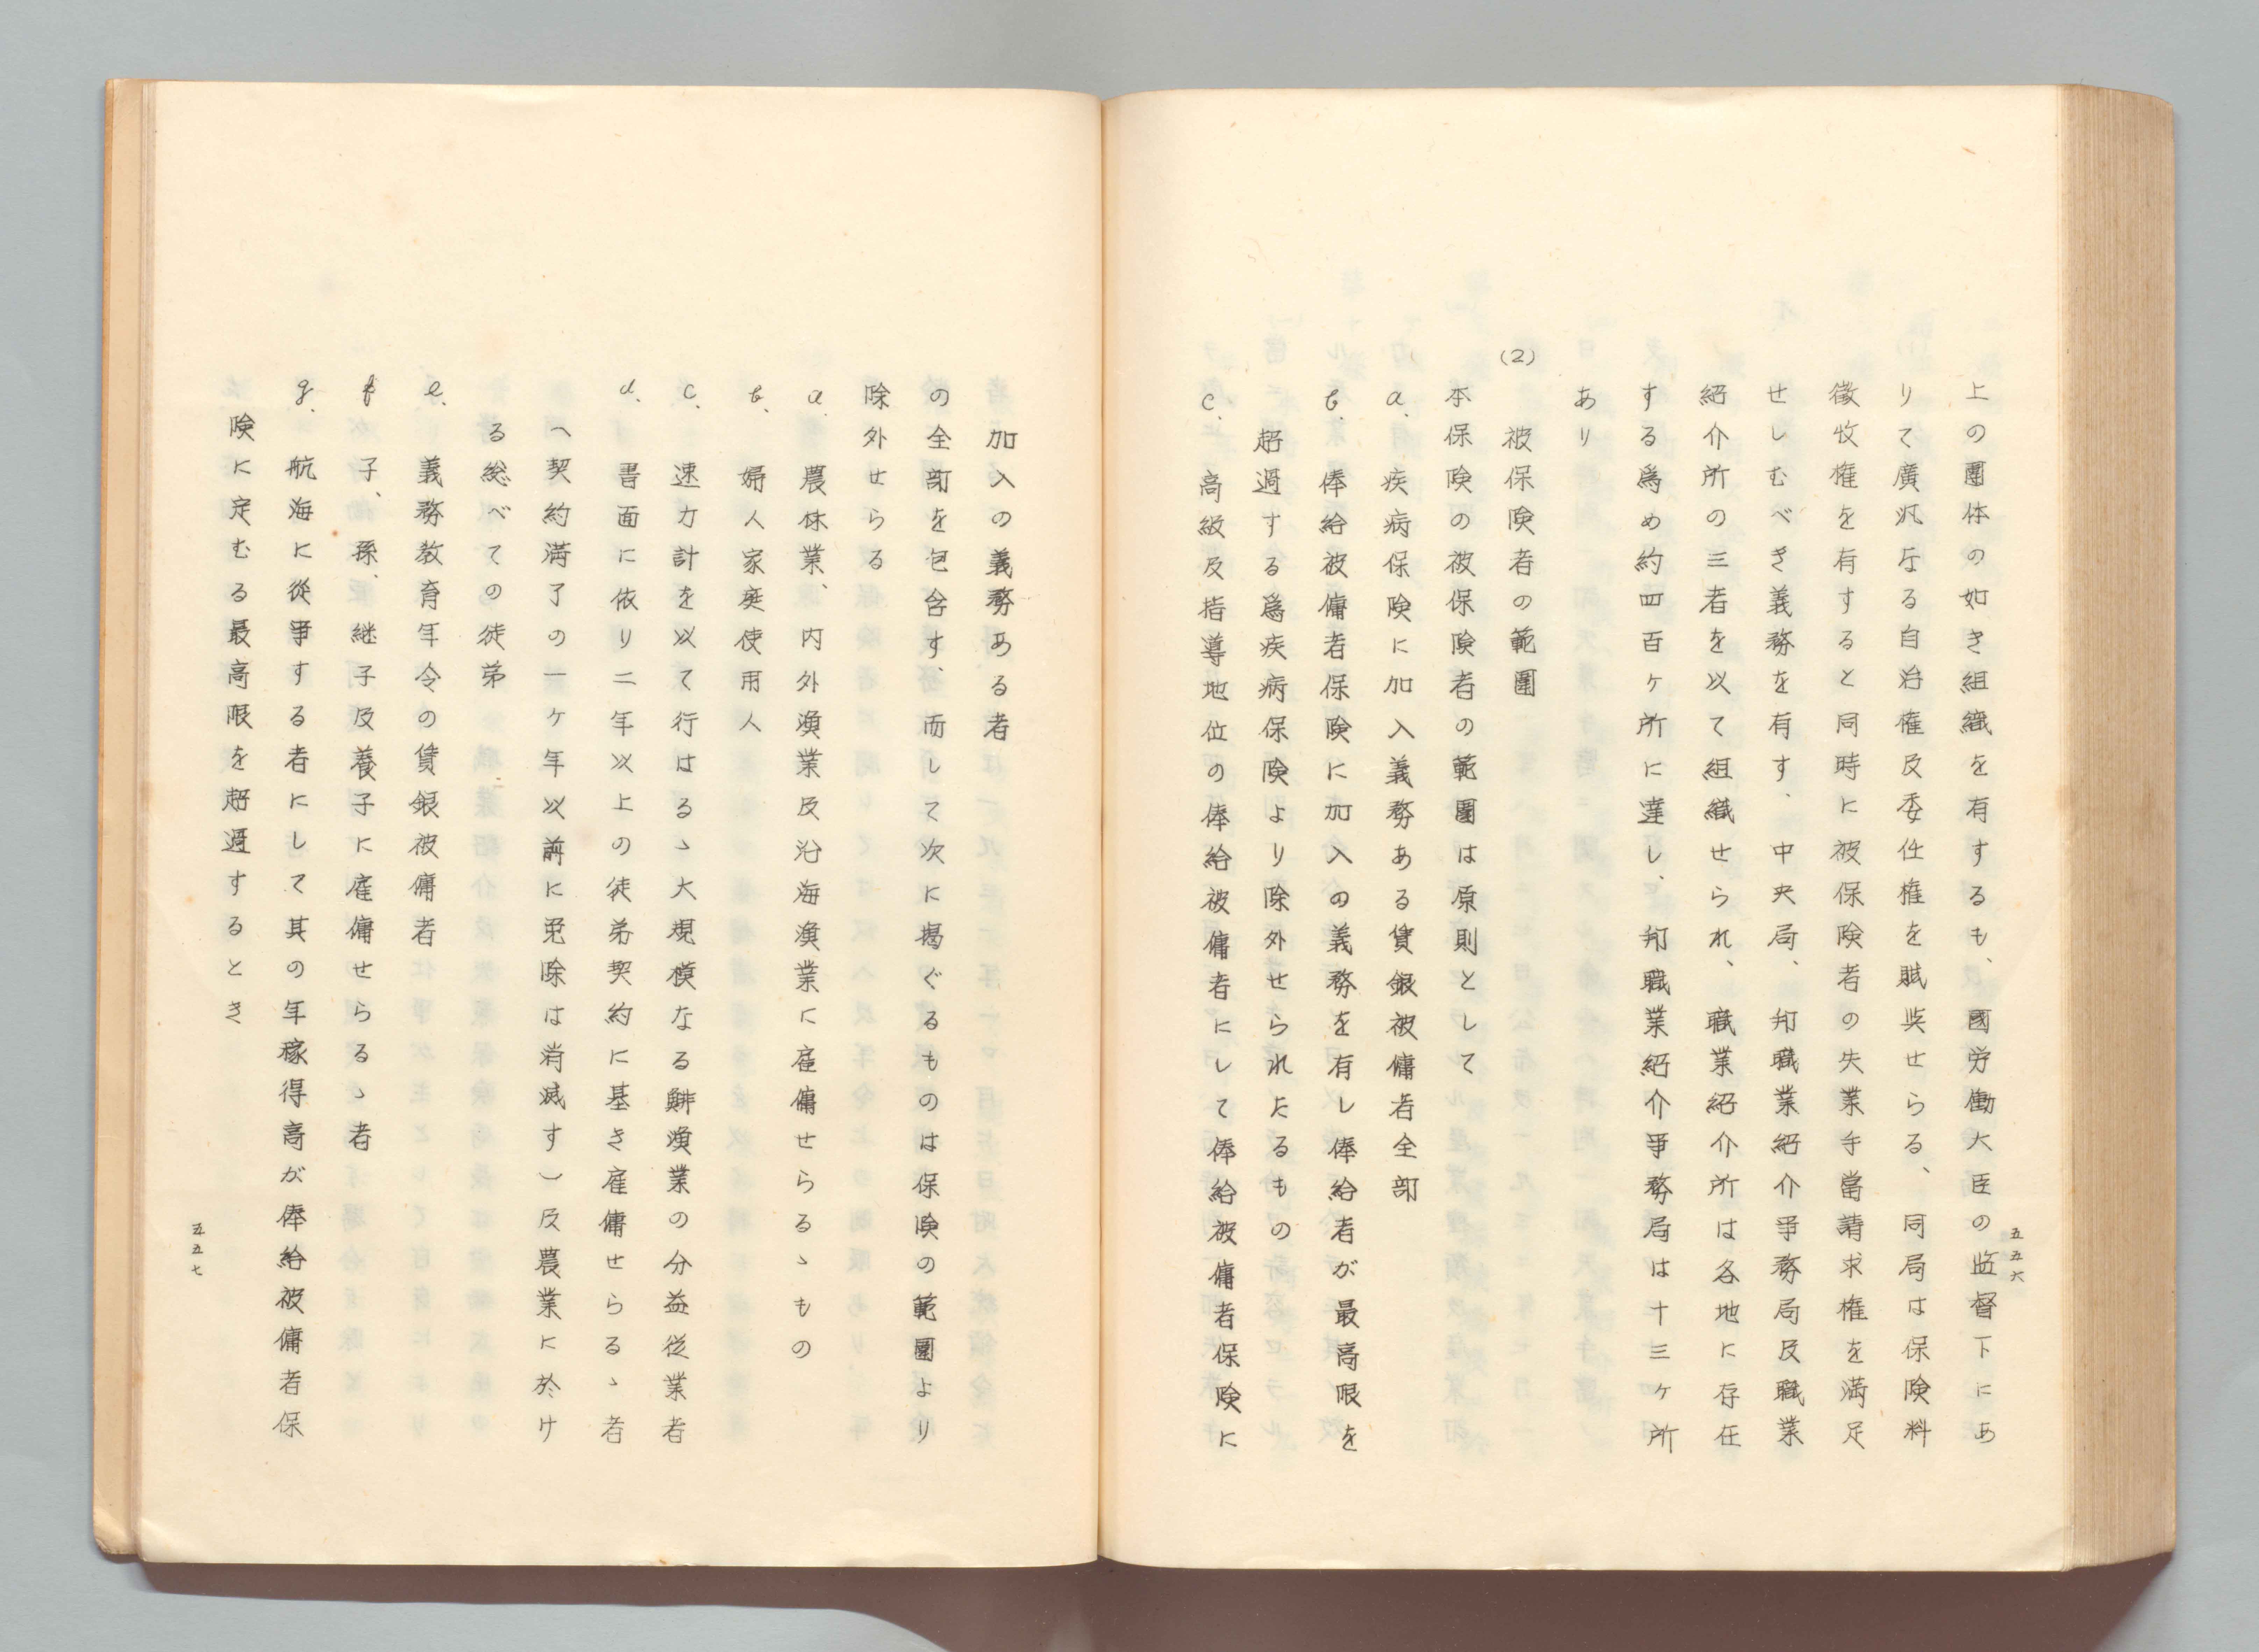 上の團体の如き組織を有するも、國労働大臣の監督下にあ
りて廣汎なる自治権及委任権を賦與せらる、同局は保険料
徴收権を有すると同時に被保険者の失業手當請求権を満足
せしむべき義務を有す、中央局、邦職業紹介事務局及職業
紹介所の三者を以て組織せられ、職業紹介所は各地に存在
する爲め約四百ヶ所に達し、邦職業紹介事務局は十三ヶ所
あり
(2) 被保険者の範圍
本保険の被保険者の範圍は原則として
a. 疾病保険に加入義務ある賃銀被傭者全部
b. 俸給被傭者保険に加入の義務を有し俸給者が最高限を
超過する爲疾病保険より除外せられたるもの
c. 高級及指導地位の俸給被傭者にして俸給被傭者保険に
五五六
加入の義務ある者
の全部を包含す、而して次に掲ぐるものは保険の範圍より
除外せらる
a. 農林業、内外漁業及沿海漁業に雇傭せらるゝもの
b. 婦人家庭使用人
c. 速力計を以て行はるゝ大規模なる鯡漁業の分益従業者
d. 書面に依り二年以上の徒弟契約に基き雇傭せらるゝ者
(契約満了の一ヶ年以前に免除は消滅す)及農業に於け
る総べての徒弟
e. 義務教育年令の賃銀被傭者
f 子、孫、継子及養子に雇傭せらるゝ者
g. 航海に從事する者にして其の年稼得高が俸給被傭者保
険に定むる最高限を超過するとき
五五七